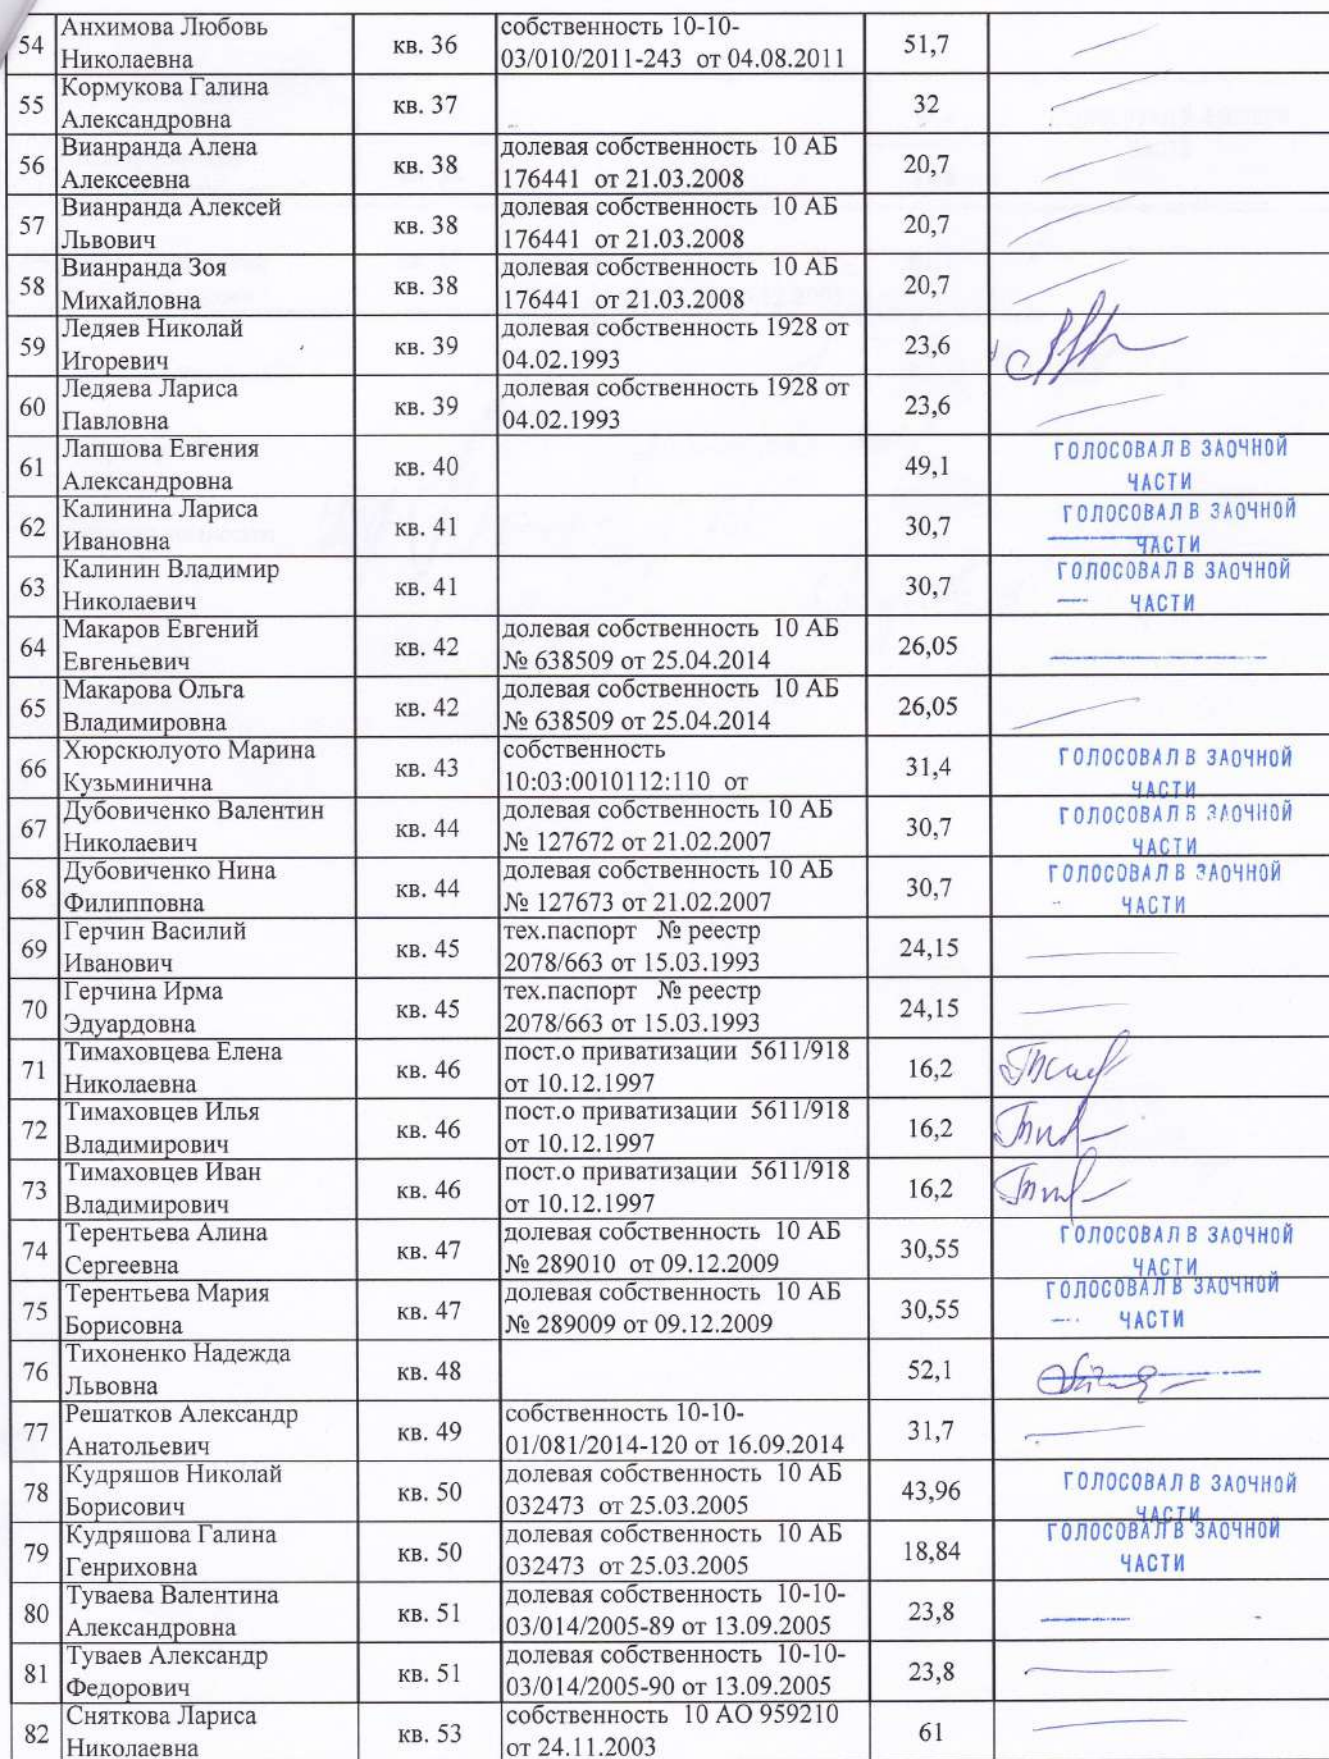 54 Анхимова Любовь Николаевна кв. 36 собственность 10-10-03/010/2011-243 от 04.08.2011 51,7
55 Кормукова Галина Александровна кв. 37 32
56 Вианранда Алена Алексеевна кв. 38 долевая собственность 10 АБ 176441 от 21.03.2008 20,7
57 Вианранда Алексей Львович кв. 38 долевая собственность 10 АБ 176441 от 21.03.2008 20,7
58 Вианранда Зоя Михайловна кв. 38 долевая собственность 10 АБ 176441 от 21.03.2008 20,7
59 Ледяев Николай Игоревич кв. 39 долевая собственность 1928 от 04.02.1993 23,6
60 Ледяева Лариса Павловна кв. 39 долевая собственность 1928 от 04.02.1993 23,6
61 Лапшова Евгения Александровна кв. 40 49,1 ГОЛОСОВАЛ В ЗАОЧНОЙ ЧАСТИ
62 Калинина Лариса Ивановна кв. 41 30,7 ГОЛОСОВАЛ В ЗАОЧНОЙ ЧАСТИ
63 Калинин Владимир Николаевич кв. 41 30,7 ГОЛОСОВАЛ В ЗАОЧНОЙ ЧАСТИ
64 Макаров Евгений Евгеньевич кв. 42 долевая собственность 10 АБ № 638509 от 25.04.2014 26,05
65 Макарова Ольга Владимировна кв. 42 долевая собственность 10 АБ № 638509 от 25.04.2014 26,05
66 Хюрскюлуото Марина Кузьминична кв. 43 собственность 10:03:0010112:110 от 31,4 ГОЛОСОВАЛ В ЗАОЧНОЙ ЧАСТИ
67 Дубовиченко Валентин Николаевич кв. 44 долевая собственность 10 АБ № 127672 от 21.02.2007 30,7 ГОЛОСОВАЛ В ЗАОЧНОЙ ЧАСТИ
68 Дубовиченко Нина Филипповна кв. 44 долевая собственность 10 АБ № 127673 от 21.02.2007 30,7 ГОЛОСОВАЛ В ЗАОЧНОЙ ЧАСТИ
69 Герчин Василий Иванович кв. 45 тех.паспорт № реестр 2078/663 от 15.03.1993 24,15
70 Герчина Ирма Эдуардовна кв. 45 тех.паспорт № реестр 2078/663 от 15.03.1993 24,15
71 Тимаховцева Елена Николаевна кв. 46 пост.о приватизации 5611/918 от 10.12.1997 16,2
72 Тимаховцев Илья Владимирович кв. 46 пост.о приватизации 5611/918 от 10.12.1997 16,2
73 Тимаховцев Иван Владимирович кв. 46 пост.о приватизации 5611/918 от 10.12.1997 16,2
74 Терентьева Алина Сергеевна кв. 47 долевая собственность 10 АБ № 289010 от 09.12.2009 30,55 ГОЛОСОВАЛ В ЗАОЧНОЙ ЧАСТИ
75 Терентьева Мария Борисовна кв. 47 долевая собственность 10 АБ № 289009 от 09.12.2009 30,55 ГОЛОСОВАЛ В ЗАОЧНОЙ ЧАСТИ
76 Тихоненко Надежда Львовна кв. 48 52,1
77 Решатков Александр Анатольевич кв. 49 собственность 10-10-01/081/2014-120 от 16.09.2014 31,7
78 Кудряшов Николай Борисович кв. 50 долевая собственность 10 АБ 032473 от 25.03.2005 43,96 ГОЛОСОВАЛ В ЗАОЧНОЙ ЧАСТИ
79 Кудряшова Галина Генриховна кв. 50 долевая собственность 10 АБ 032473 от 25.03.2005 18,84 ГОЛОСОВАЛ В ЗАОЧНОЙ ЧАСТИ
80 Туваева Валентина Александровна кв. 51 долевая собственность 10-10-03/014/2005-89 от 13.09.2005 23,8
81 Туваев Александр Федорович кв. 51 долевая собственность 10-10-03/014/2005-90 от 13.09.2005 23,8
82 Сняткова Лариса Николаевна кв. 53 собственность 10 АО 959210 от 24.11.2003 61